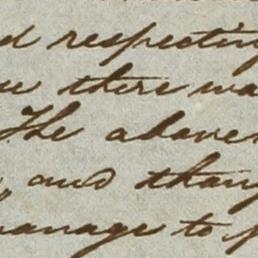 d respecting
there wa
The above
, and than
manage to p